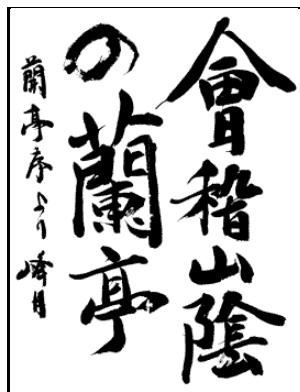 會稽山陰
の蘭亭
蘭亭序より 峰月